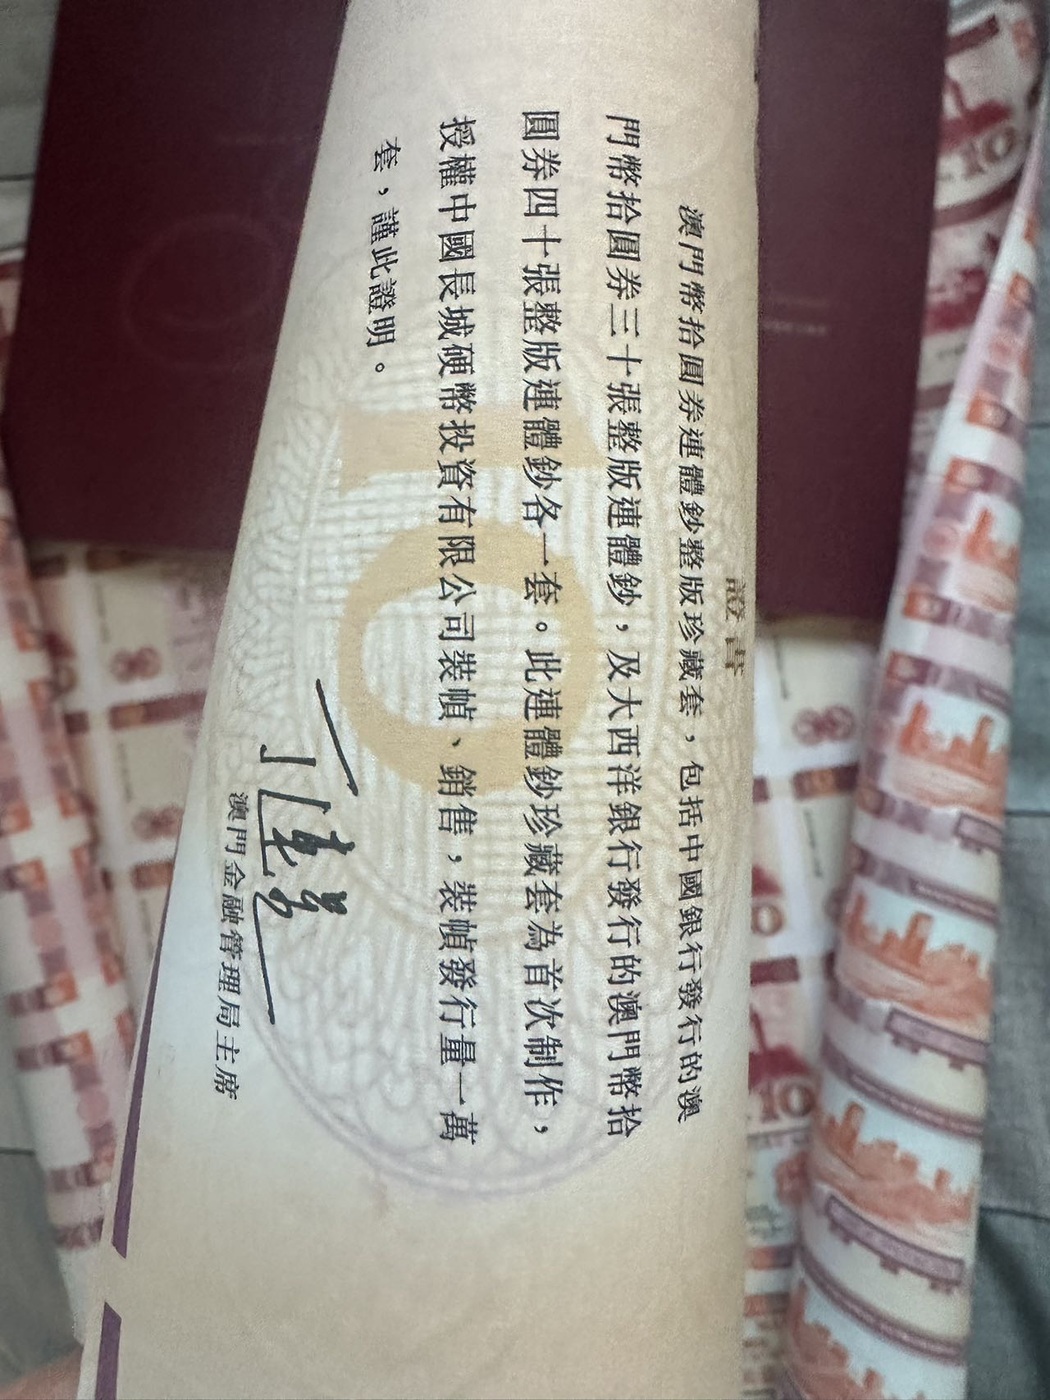 證書
澳門幣拾圓券連體鈔整版珍藏套，包括中國銀行發行的澳
門幣拾圓券三十張整版連體鈔，及大西洋銀行發行的澳門幣拾
圓券四十張整版連體鈔各一套。此連體鈔珍藏套為首次制作，
授權中國長城硬幣投資有限公司裝幀、銷售，裝幀發行量一萬
套，謹此證明。
澳門金融管理局主席
10
10
10
10